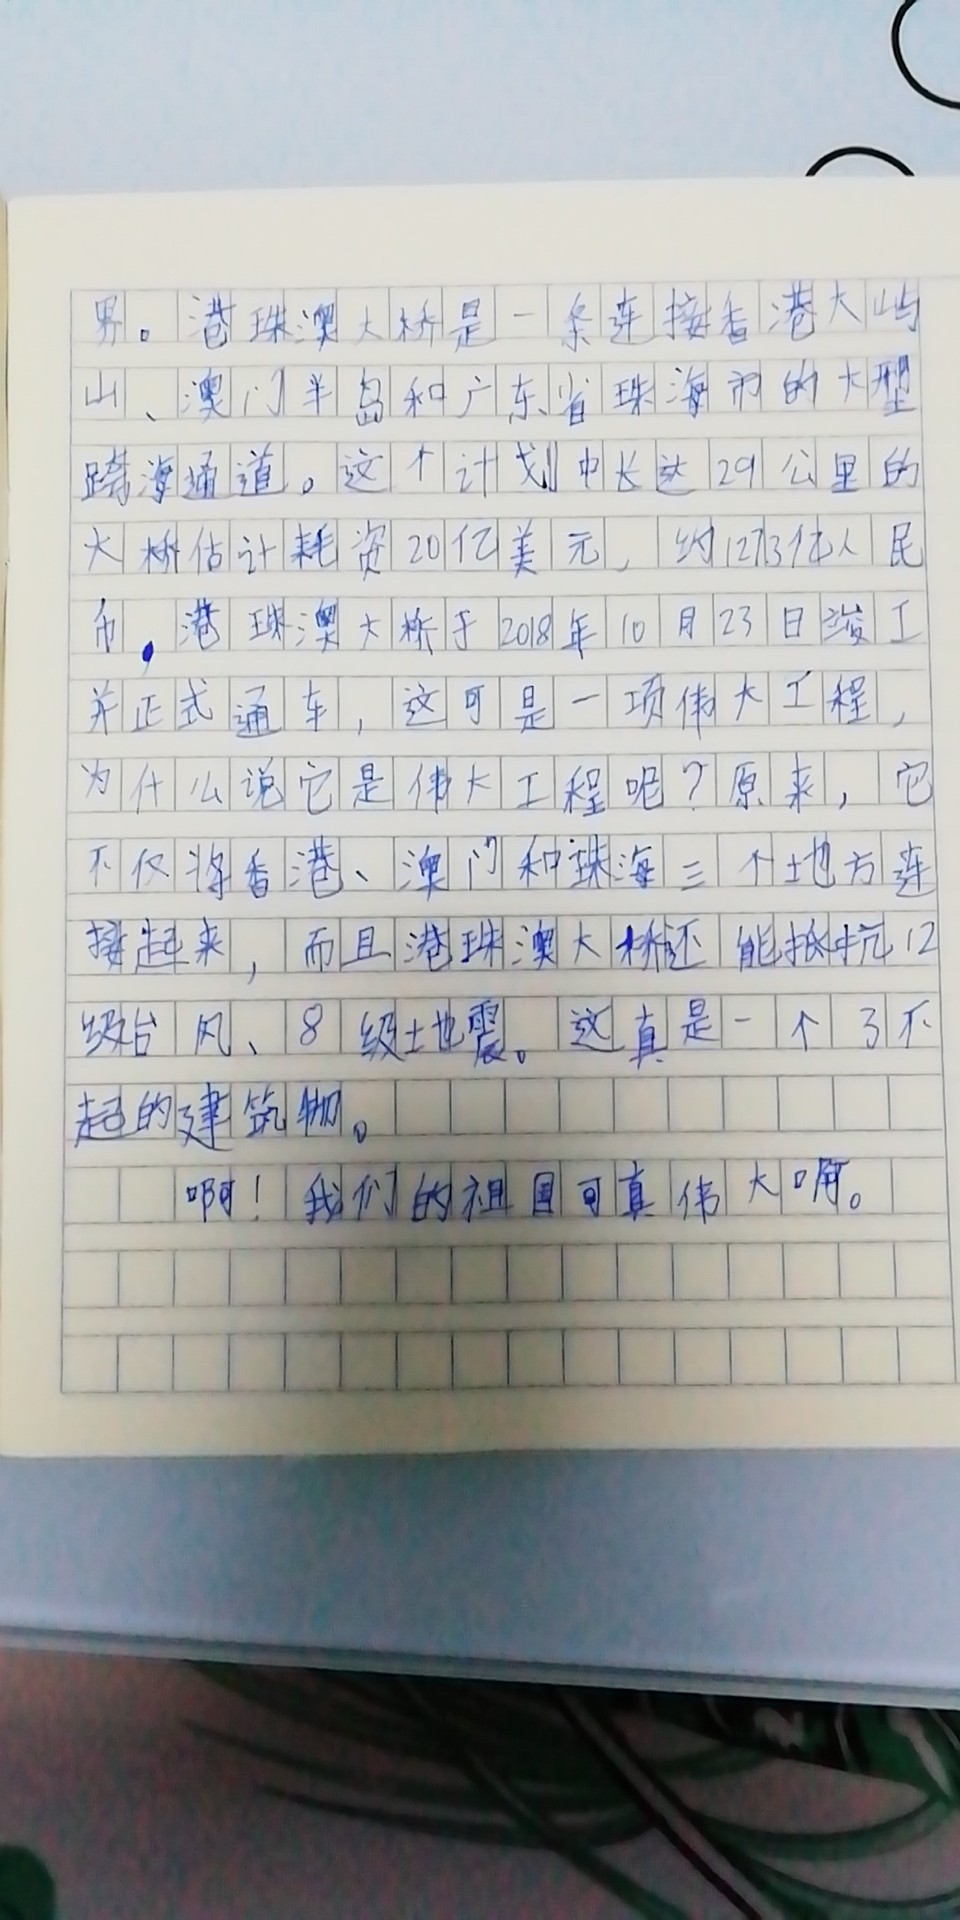 界。港珠澳大桥是一条连接香港大屿
山、澳门半岛和广东省珠海市的大型
跨海通道。这个计划中长达29公里的
大桥估计耗资20亿美元,约1273亿人民
币,港珠澳大桥于2018年10月23日竣工
并正式通车,这可是一项伟大工程,
为什么说它是伟大工程呢?原来,它
不仅将香港、澳门和珠海三个地方连
接起来,而且港珠澳大桥还能抵抗12
级台风、8级土地震。这真是一个了不
起的建筑物。
啊!我们的祖国可真伟大啊。